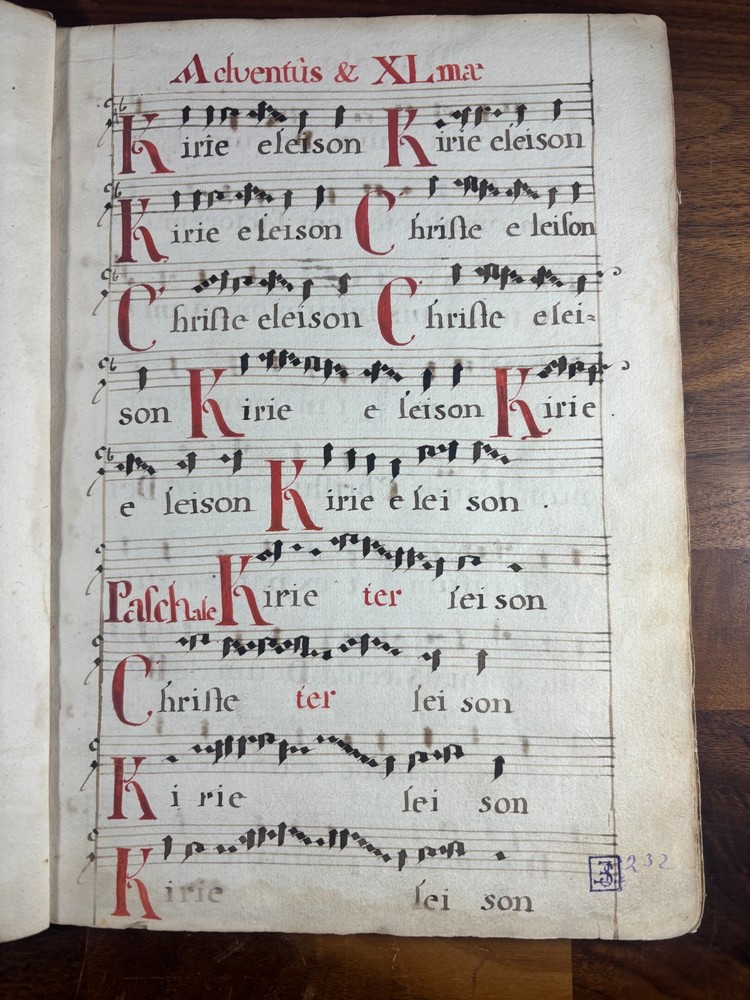 Adventûs & XLmæ
Kirie eleison Kirie eleison
Kirie eleison Christe eleison
Christe eleison Christe elei=
son Kirie eleison Kirie
eleison Kirie eleison .
Paschale Kirie ter leison
Christe ter leison
Kirie leison
Kirie leison
232